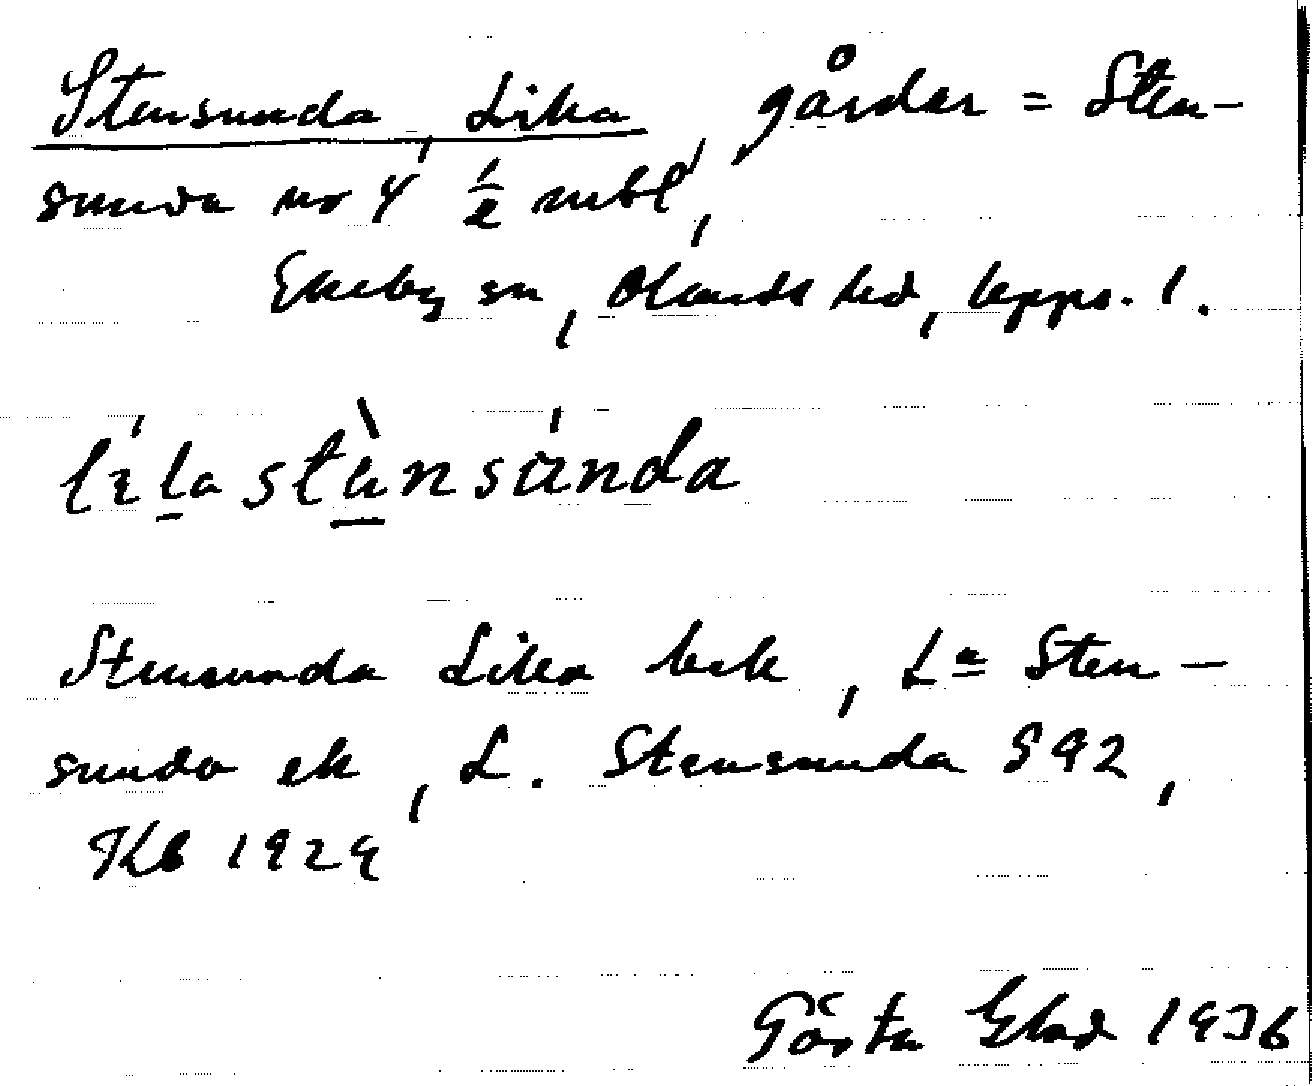 Stensunda, Lilla, gårdar = Sten-
sunda nr 4 1/2 mtl,
Ekeby sn, Olands hd, Upps. l.
Stensunda Lilla bsk, La Sten-
sunda ek, L. Stensunda S 92,
Kb 1929
Gösta Elad 1936